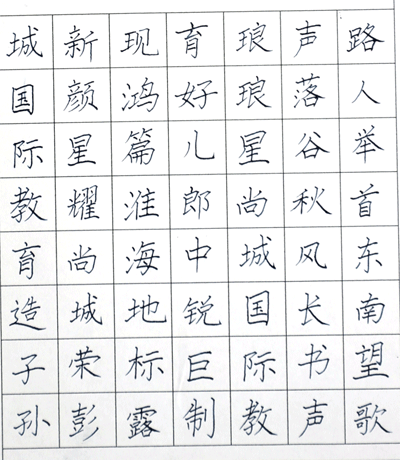 路人举首东南望歌
声落谷秋风长书声
琅琅星尚城国际教
育好儿郎中锐巨制
现鸿篇淮海地标露
新颜星耀尚城荣彭
城国际教育造子孙